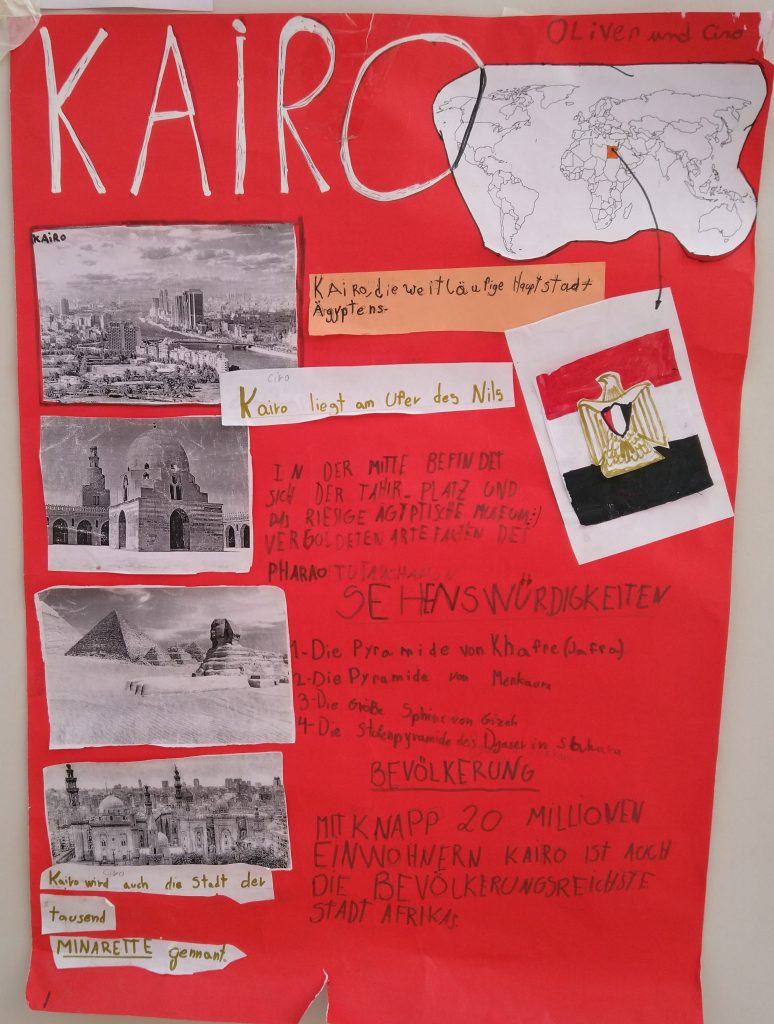 KAIRO
OLiver und Ciro
KAiRO
KAiro, die weitläufige Hauptstadt
Ägyptens.
Ciro
Kairo liegt am Ufer des Nils
IN DER MITTE BEFINDET
SICH DER TAHIR-PLATZ UND
DAS RIESIGE ÄGYPTISCHE MUSEUM:)
VERGOLDETEN ARTEFAKTEN DES
PHARAO TUTANCHAMON
SEHENSWÜRDIGKEITEN
1-Die Pyramide von Khafre (Jafra)
2-Die Pyramide von Menkaura
3-Die Größe Sphinx von Gizeh
4-Die Stufenpyramide des Djaser in Sakkara
BEVÖLKERUNG
MIT KNAPP 20 MILLIONEN
EINWOHNERN KAIRO IST AUCH
DIE BEVÖLKERUNGSREICHSTE
STADT AFRIKAS.
Ciro
Kairo wird auch die Stadt der
tausend
MINARETTE gennant.